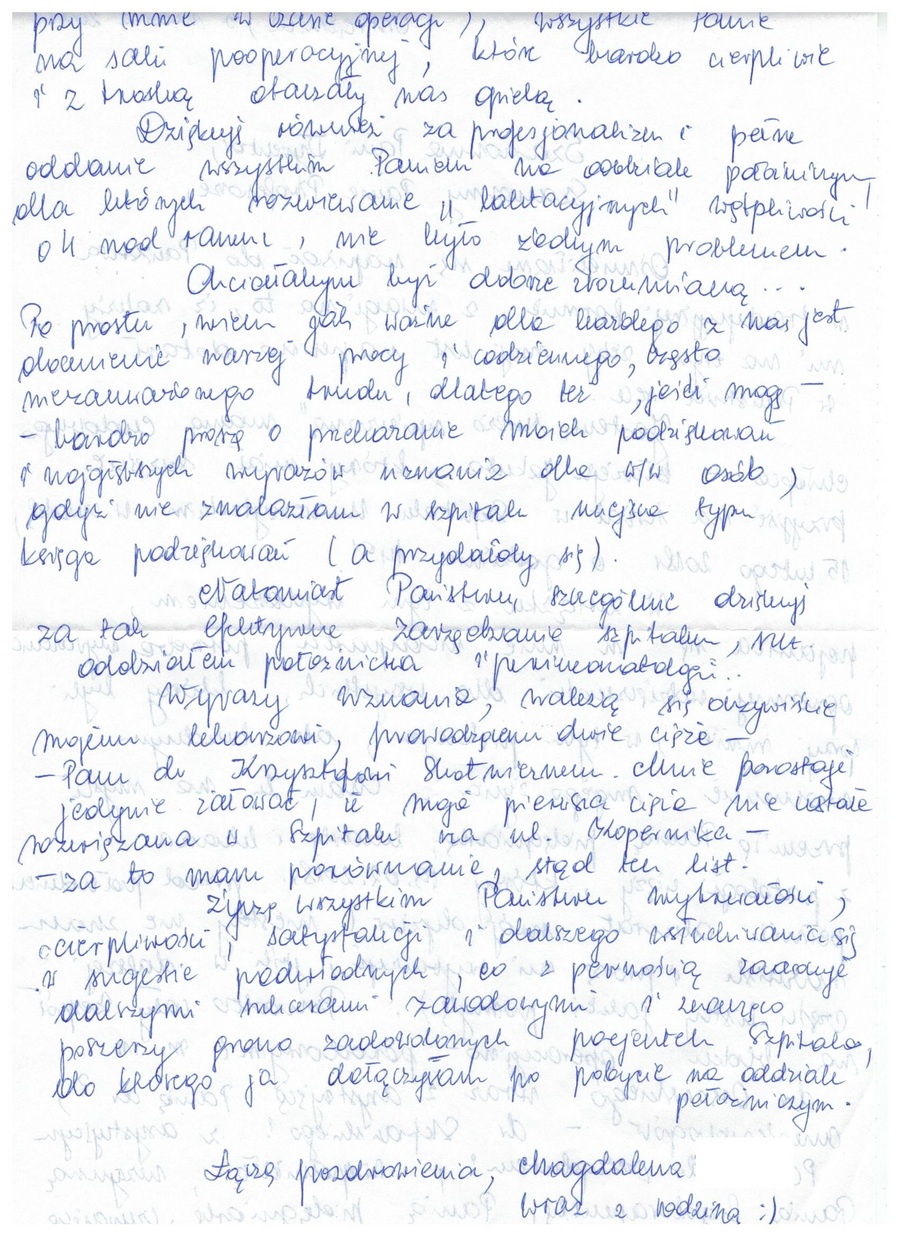 przy mnie w czasie operacji), wszystkie Panie
na sali pooperacyjnej, które bardzo cierpliwie
i z troską otaczały nas opieką.
Dziękuję również za profesjonalizm i pełne
oddanie wszystkim Paniom na oddziale położniczym,
dla których rozwiewanie "laktacyjnych" wątpliwości
o 4 nad ranem, nie było żadnym problemem.
Chciałabym być dobrze zrozumianą...
Po prostu, wiem jak ważne dla każdego z nas jest
docenienie naszej pracy i codziennego, często
niezauważonego trudu, dlatego też, jeśli mogę -
- bardzo proszę o przekazanie moich podziękowań
i najgłębszych wyrazów uznania dla w/w osób,
gdyż nie znalazłam w szpitalu miejsca typu
księga podziękowań (a przydałoby się).
Natomiast Państwu szczególnie dziękuję
za tak efektywne zarządzanie szpitalem,
oddziałem położnictwa i perineonatologii..
Wyrazy uznania, należą się oczywiście
mojemu lekarzowi, prowadzącemu dwie ciąże -
- Panu dr Krzysztofowi Skotnicznemu. Mnie pozostaje
jedynie żałować, że moja pierwsza ciąża nie została
rozwiązana w Szpitalu na ul. Kopernika -
- za to mam porównanie, stąd ten list.
Życzę wszystkim Państwu wytrwałości,
cierpliwości, satysfakcji i dalszego wsłuchiwania się
w sugestie podwładnych, co z pewnością zaowocuje
dalszymi sukcesami zawodowymi i znacząco
poszerzy grono zadowolonych pacjentek Szpitala,
do którego ja dołączyłam po pobycie na oddziale
położniczym.
Łączę pozdrowienia, Magdalena
wraz z rodziną :)